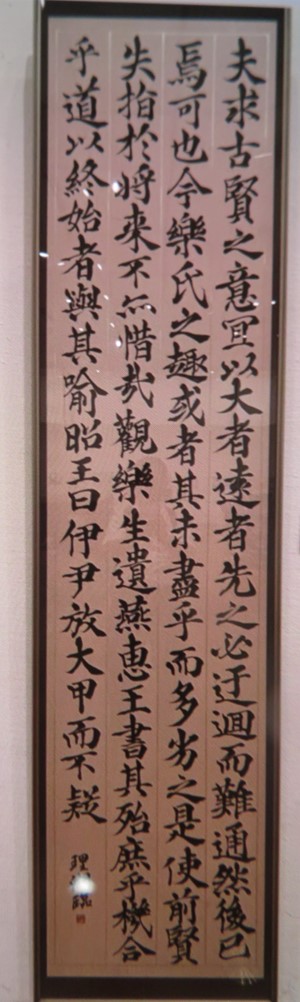 夫求古賢之意冝以大者遠者先之必迂迴而難通然後已
焉可也今樂氏之趣或者其未盡乎而多劣之是使前賢
失指於将來不亦惜哉觀樂生遺燕惠王書其殆庶乎機合
乎道以終始者與其喻昭王曰伊尹放大甲而不疑
理 臨